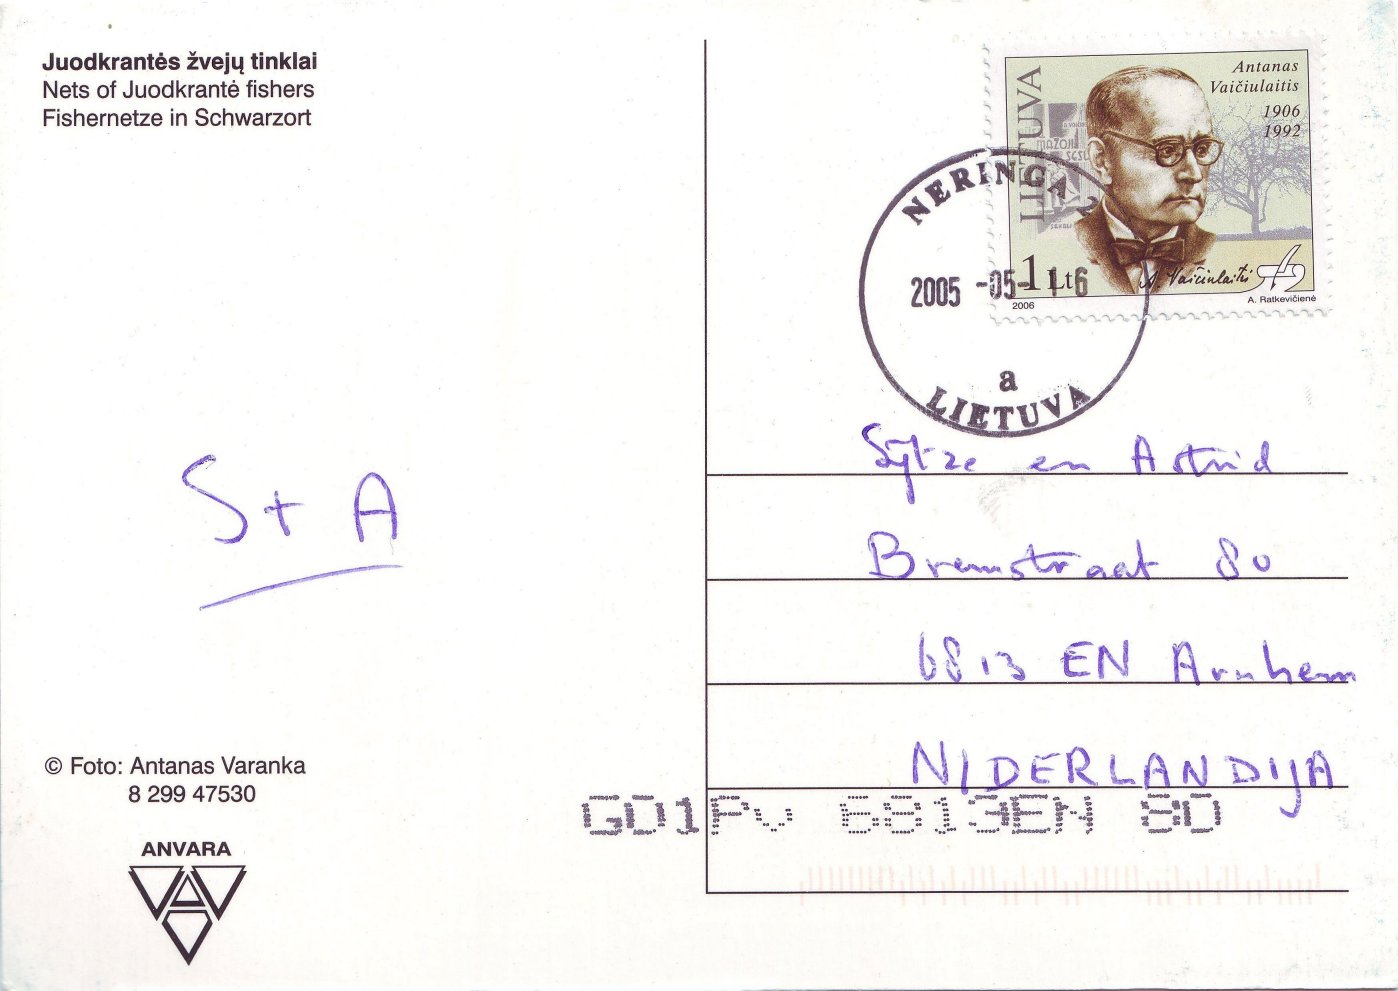 Juodkrantės žvejų tinklai
Nets of Juodkrantė fishers
Fishernetze in Schwarzort
S + A
© Foto: Antanas Varanka
8 299 47530
ANVARA
LIETUVA
Antanas
Vaičiulaitis
1906
1992
1 Lt
A. Vaičiulaitis
2006
A. Ratkevičienė
NERINGA 2
2005 -05- 16
a
LIETUVA
Sytze en Astrid
Bremstraat 80
6813 EN Arnhem
NIDERLANDIJA
GD1Pv 6813EN 80